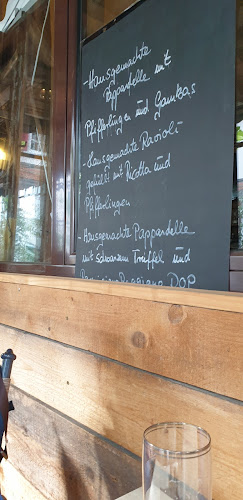 - Hausgemachte
Pappardelle mit
Pfifferlingen und Gambas
- Hausgemachte Ravioli
gefüllt mit Ricotta und
Pfifferlingen
- Hausgemachte Pappardelle
mit schwarzem Trüffel und
DOP